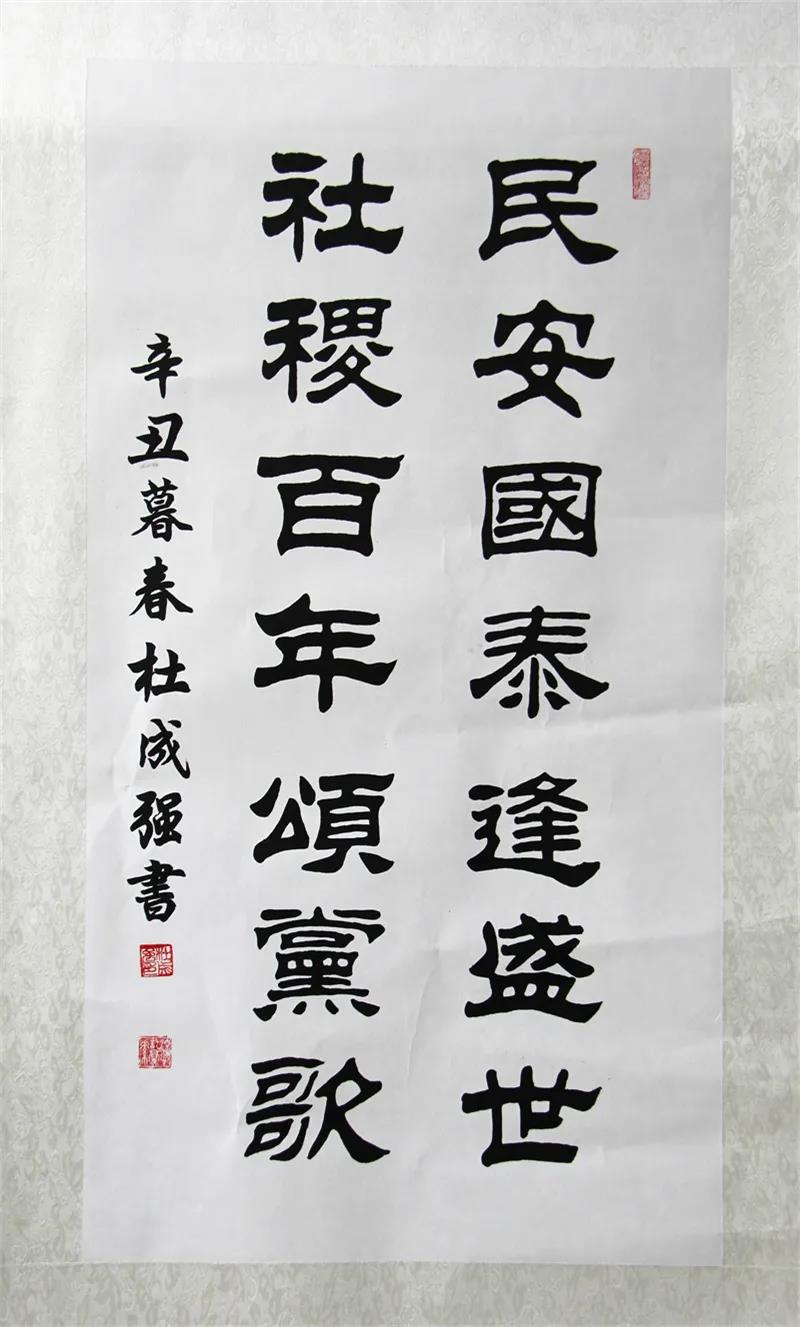 民安國泰逢盛世
社稷百年頌黨歌
辛丑暮春杜成强書